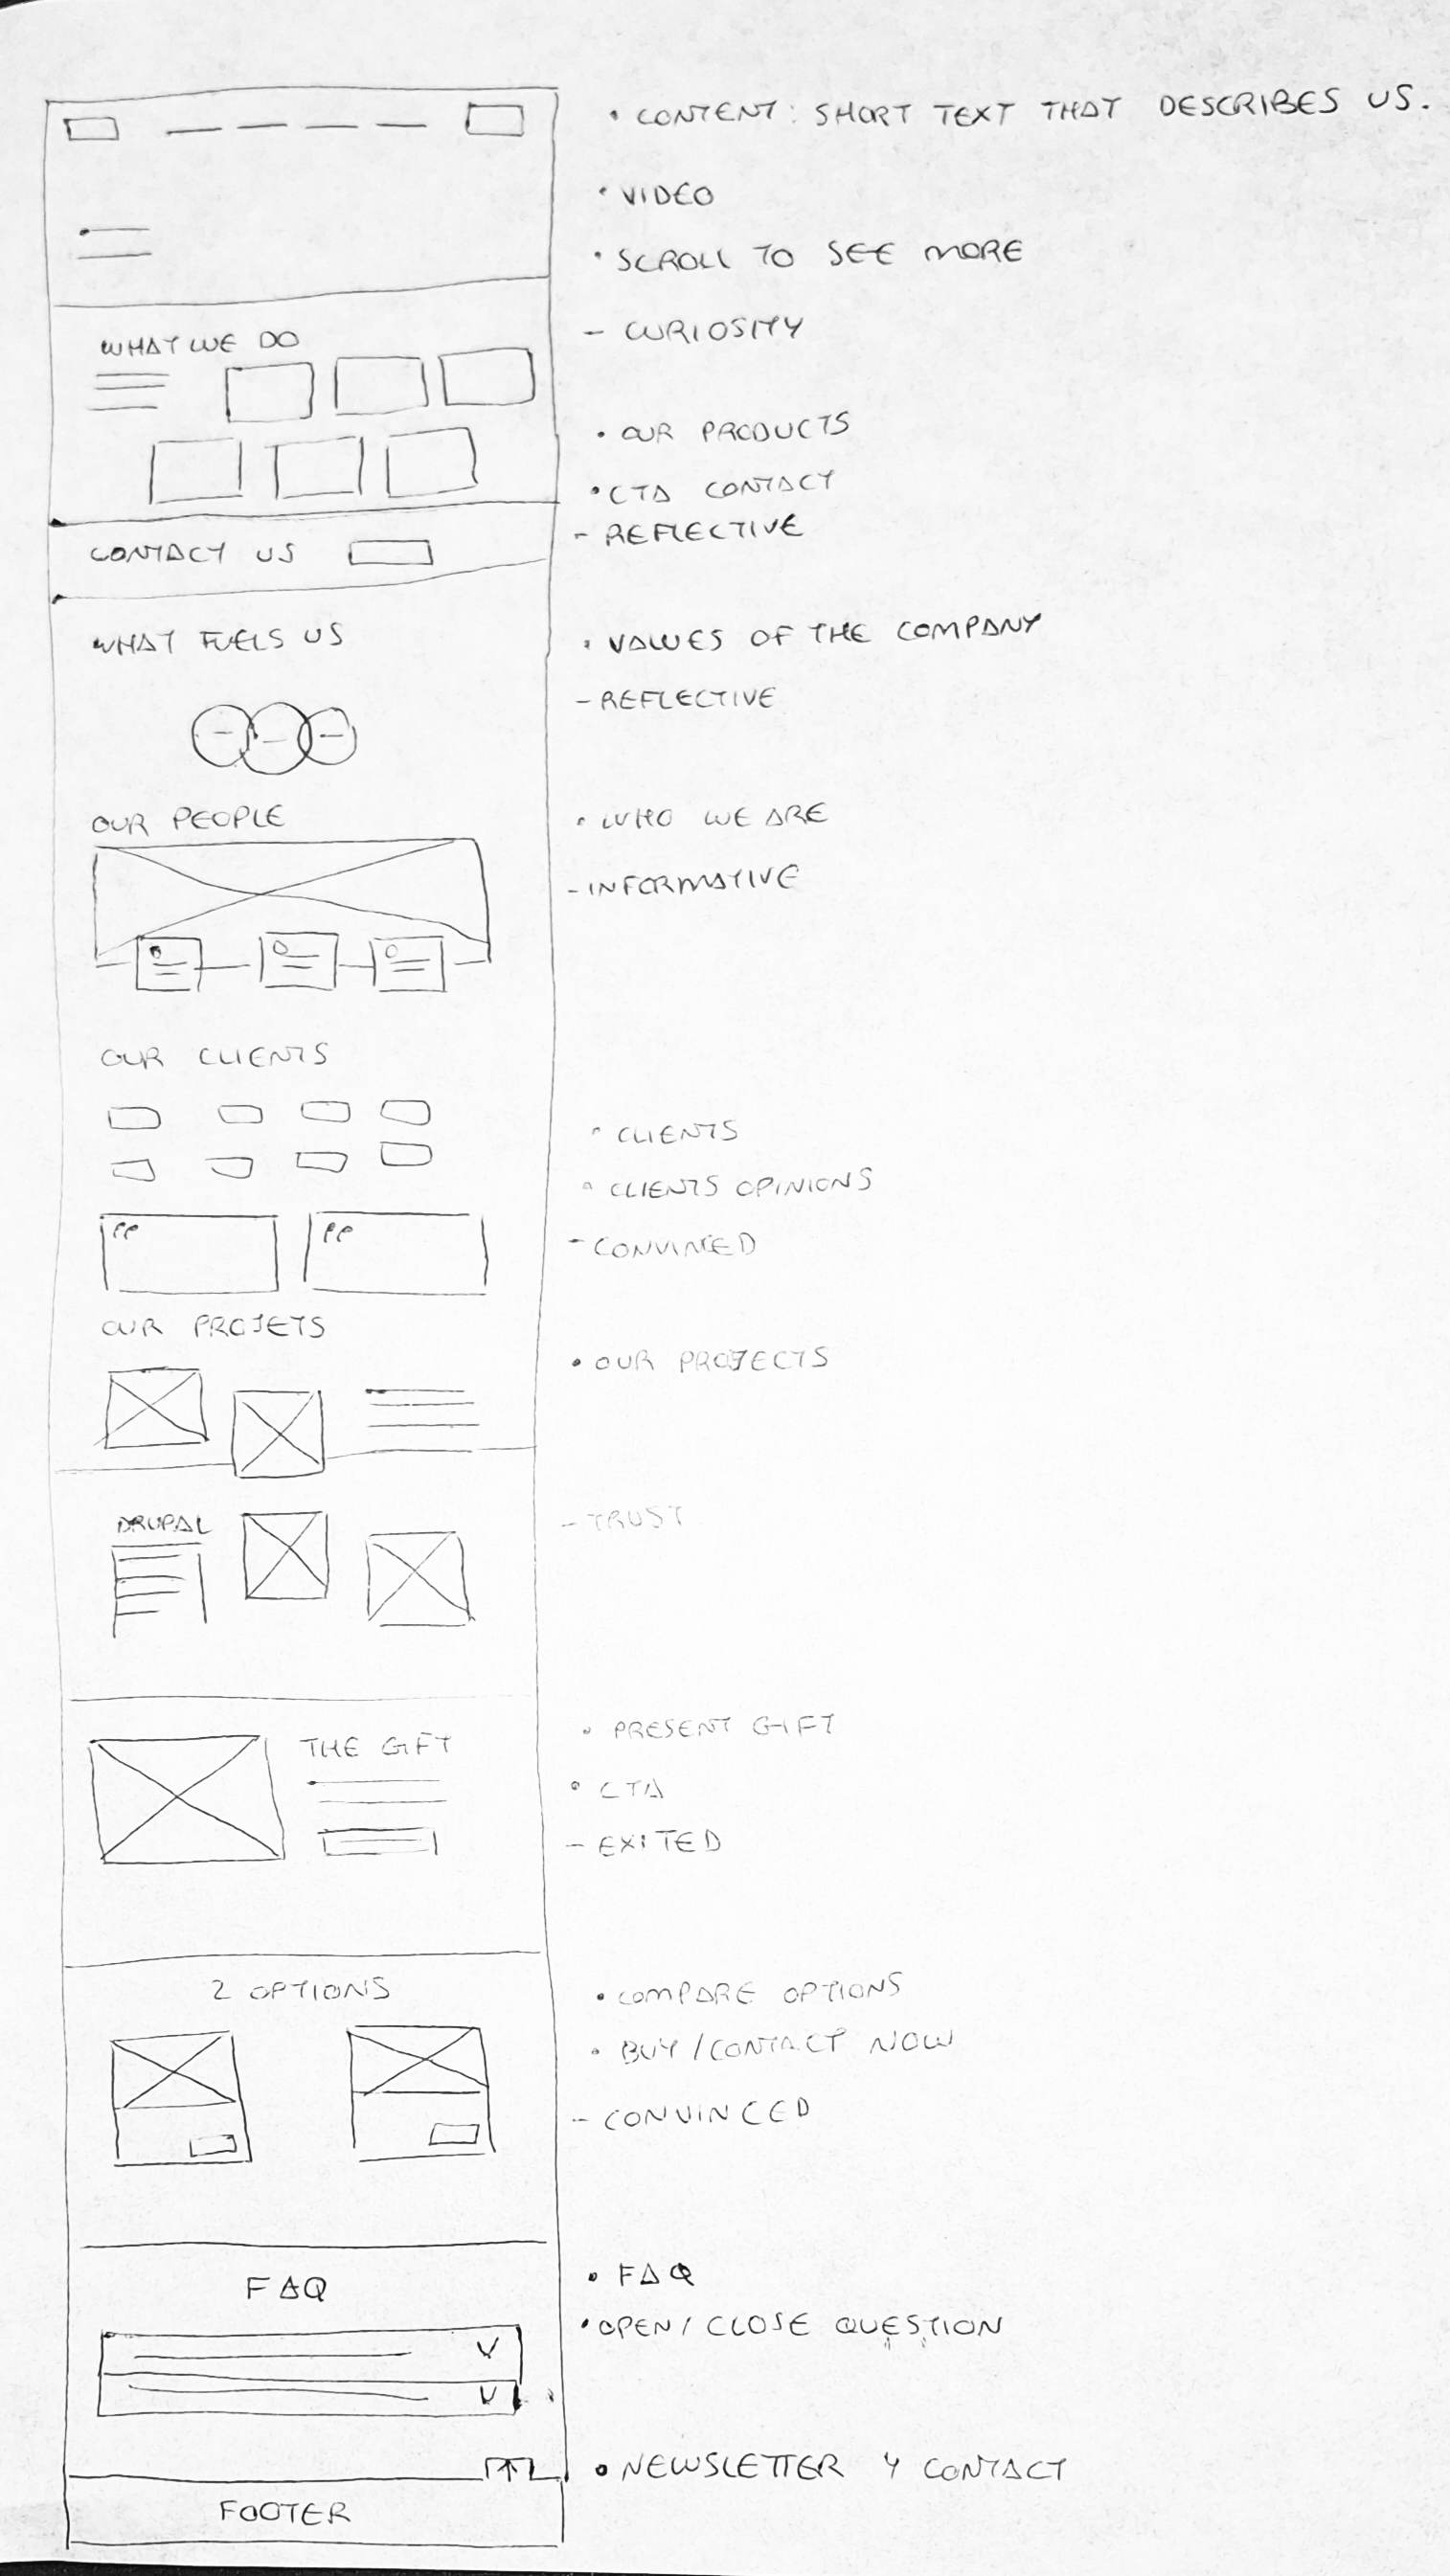 • CONTENT: SHORT TEXT THAT DESCRIBES US.
• VIDEO
• SCROLL TO SEE MORE
- CURIOSITY
WHAT WE DO
• OUR PRODUCTS
• CTA CONTACT
- REFLECTIVE
CONTACT US
WHAT FUELS US
• VALUES OF THE COMPANY
- REFLECTIVE
OUR PEOPLE
• WHO WE ARE
- INFORMATIVE
OUR CLIENTS
• CLIENTS
• CLIENTS OPINIONS
- CONVINCED
OUR PROJETS
• OUR PROJECTS
DRUPAL
- TRUST
THE GIFT
• PRESENT GIFT
• CTA
- EXITED
2 OPTIONS
• COMPARE OPTIONS
• BUY/CONTACT NOW
- CONVINCED
FAQ
• FAQ
• OPEN/CLOSE QUESTION
• NEWSLETTER Y CONTACT
FOOTER